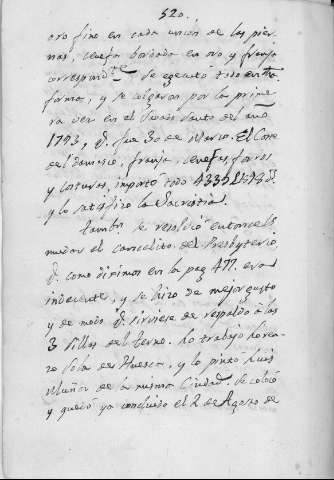 520.
oro fino en cada union de las pier-
nas, cenefa bordada en oro y franja
correspond.te Se egecutó todo en esta
forma, y se colgaron por la prime-
ra vez en el Jueves Santo del año
1793, q. fue 30 de Marzo. El Coste
del damasco, franja, cenefas, forros
y costuras, importó todo
y lo satisfizo la Sacristia.
tambn. se resolvió entonces
mudar el cancelito del Presbyterio
q. como digimos en la pag 477. era
indecente, y se hizo de mejor gusto
y de modo q. sirviese de respaldo á las
3 sillas del terno. Lo trabajó Loren-
zo Sola de Huesca, y lo pintó Luis
Muñoz de la misma Ciudad. Se colocó
y quedó ya concluido el 2 de Agosto de